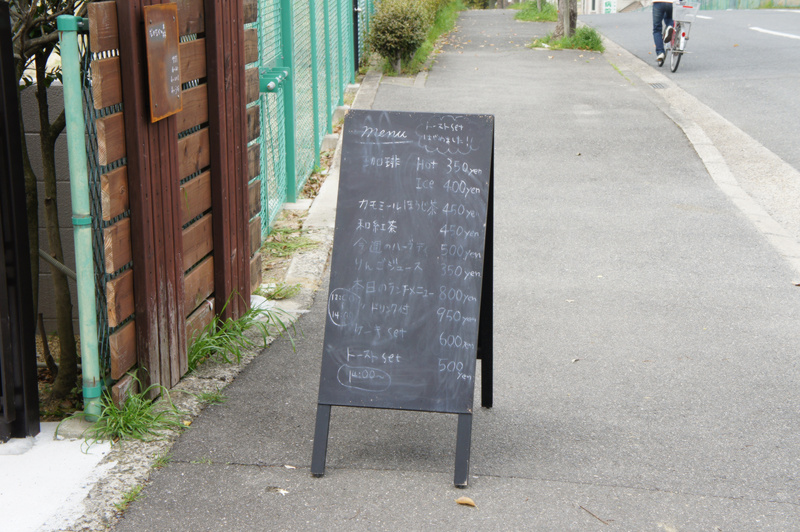 menu
トーストset
はじめました!!
珈琲 Hot 350yen
Ice 400yen
カモミールほうじ茶 450yen
和紅茶 450yen
今週のハーブティ 500yen
りんごジュース 350yen
本日のランチメニュー 800yen
ドリンク付 950yen
14:00
ケーキset 600yen
トーストset 500yen
14:00~